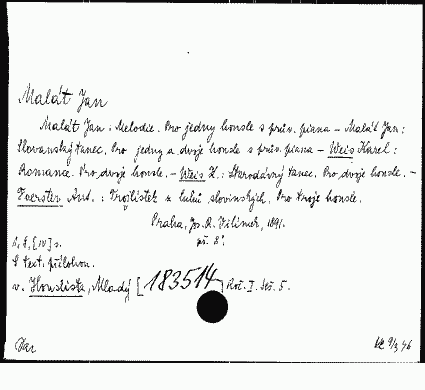 Malát Jan
Malát Jan: Melodie. Pro jedny housle s prův. piana – Malát Jan:
Slovanský tanec. Pro jedny a dvoje housle s prův. piana – Weis Karel:
Romance. Pro dvoje housle. – Weis K.: Starodávný tanec. Pro dvoje housle. –
Foerster Ant.: Trojlístek z luhů slovinských. Pro troje housle.
Praha, Jos. R. Vilímek, 1891.
[IV] s. př. 8°.
S text. přílohou.
v. Houslista, Mladý [183514] Roč. I. Seš. 5.